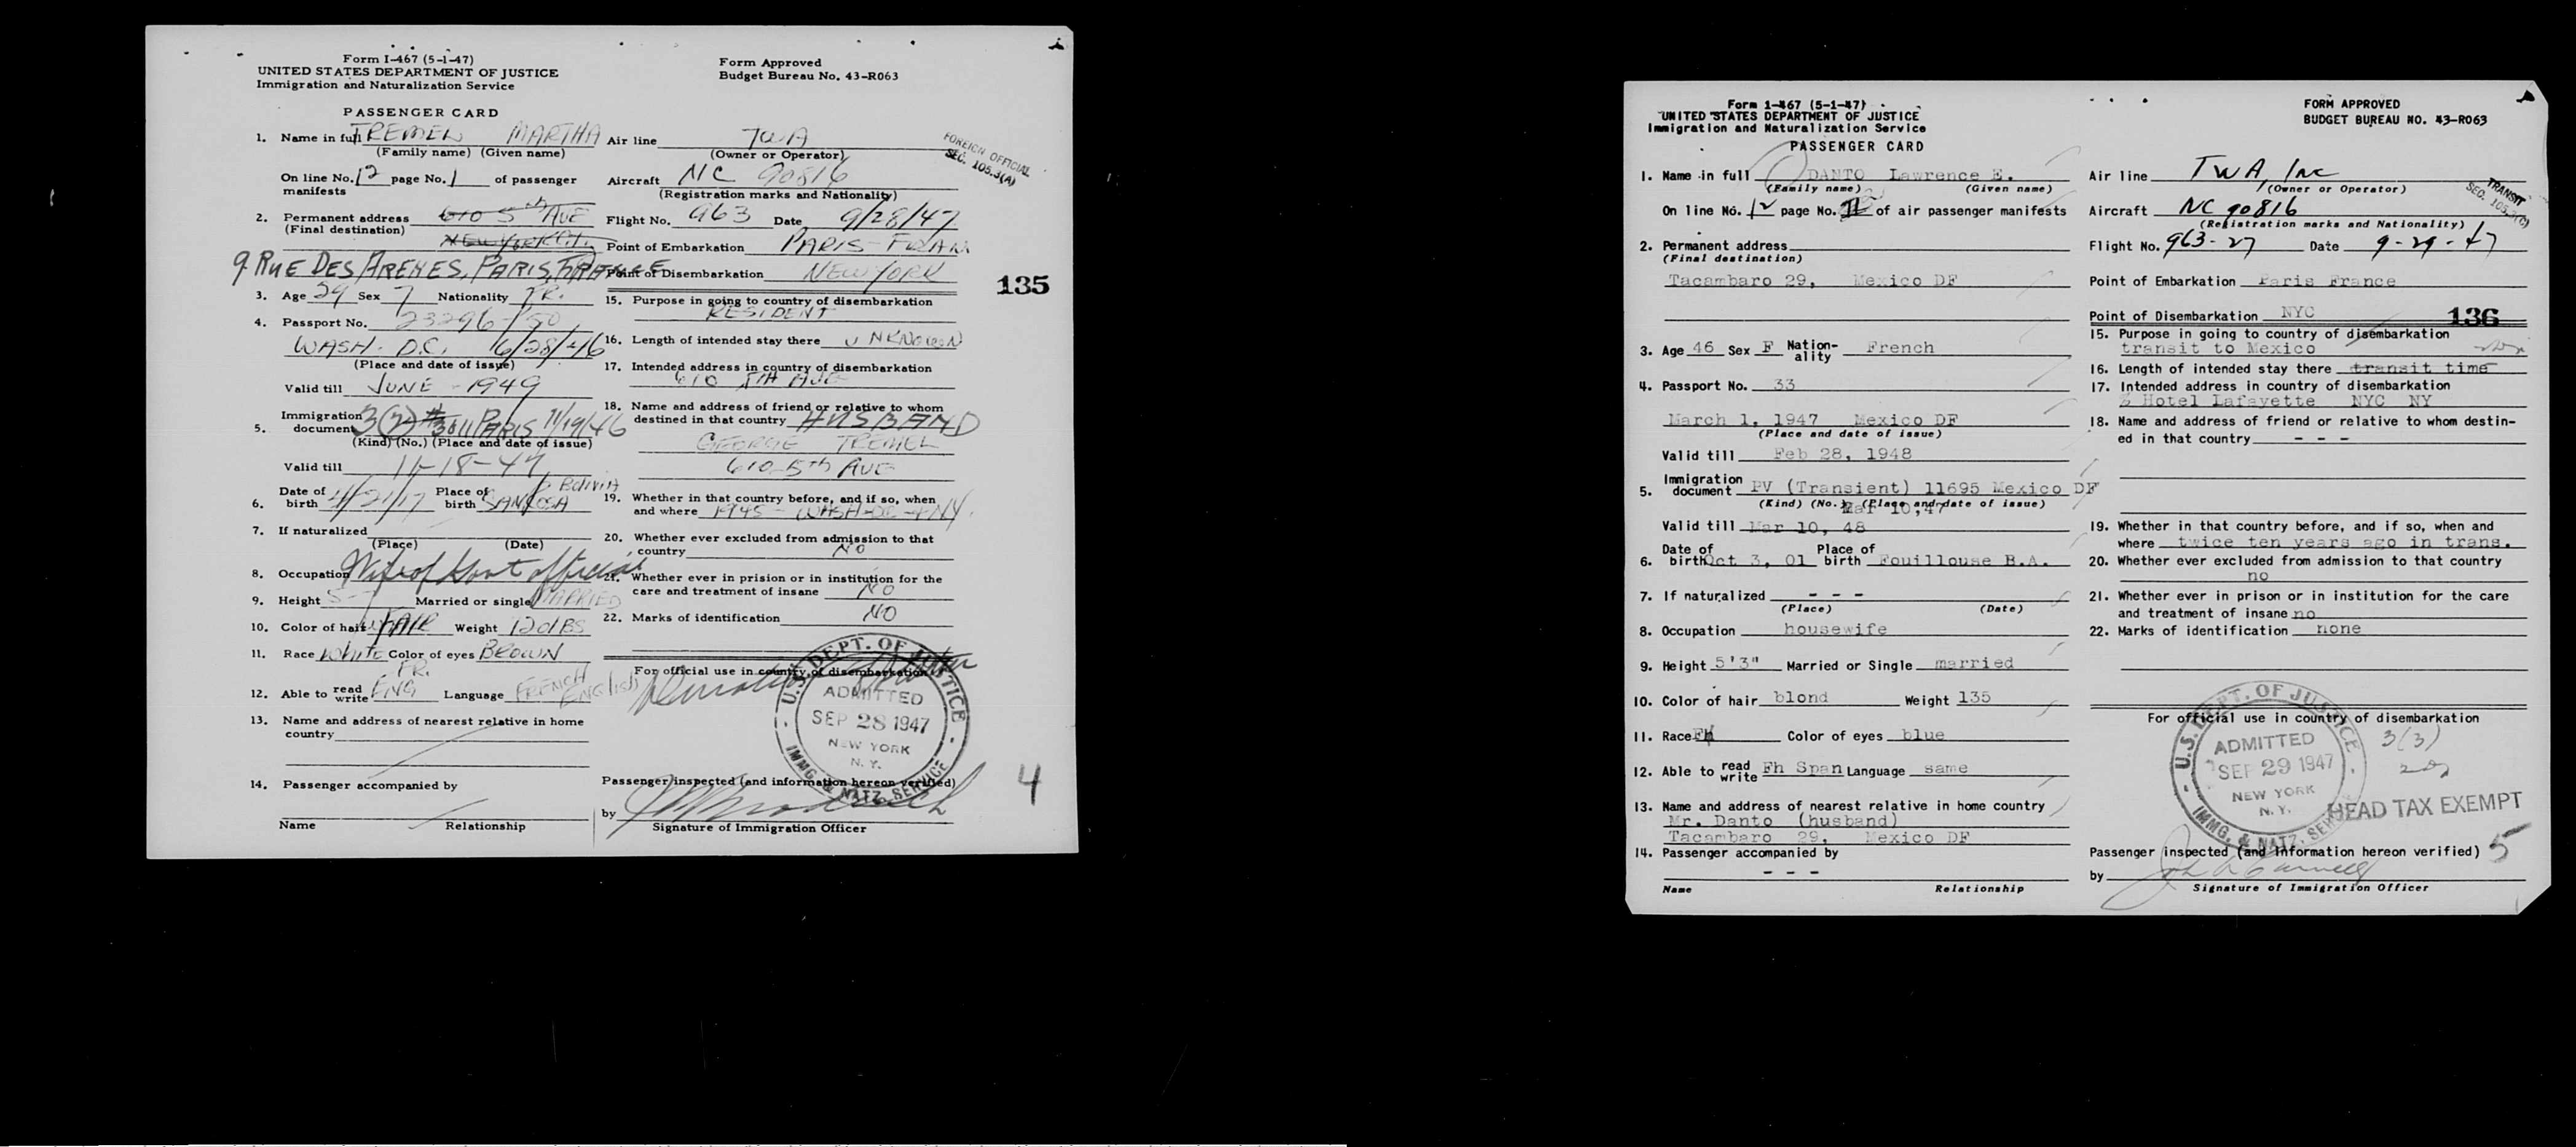 Form I-467 (5-1-47)
UNITED STATES DEPARTMENT OF JUSTICE
Immigration and Naturalization Service
Form Approved
Budget Bureau No. 43-R063
PASSENGER CARD
1. Name in full TREMEL MARTHA
(Family name) (Given name)
On line No. 12 page No. 1 of passenger
manifests
2. Permanent address 610 5th AVE
(Final destination)
NEW YORK
9. RUE DES ARENES, PARIS, FRANCE
3. Age 29 Sex F Nationality FR.
4. Passport No. 23296/50
WASH. D.C. 6/28/46
(Place and date of issue)
Valid till JUNE - 1949
5. Immigration
document 3(2) # 3011 PARIS 11/19/46
(Kind) (No.) (Place and date of issue)
Valid till 11-18-47
6. Date of
birth 4/21/17 Place of
birth BOLIVIA
7. If naturalized
(Place) (Date)
8. Occupation Wife of Govt official
9. Height 5-7 Married or single MARRIED
10. Color of hair FAIR Weight 120 lBS
11. Race White Color of eyes BROWN
12. Able to read
write FR. ENG Language FRENCH ENGlish
13. Name and address of nearest relative in home
country
14. Passenger accompanied by
Name Relationship
Air line TWA
(Owner or Operator)
FOREIGN OFFICIAL
SEC. 105.3(A)
Aircraft NC 90816
(Registration marks and Nationality)
Flight No. 963 Date 9/28/47
Point of Embarkation PARIS - FRAN
Point of Disembarkation NEW YORK
135
15. Purpose in going to country of disembarkation
RESIDENT
16. Length of intended stay there UNKNOWN
17. Intended address in country of disembarkation
610 5TH AVE
18. Name and address of friend or relative to whom
destined in that country HUSBAND
GEORGE TREMEL
610-5th AVE
19. Whether in that country before, and if so, when
and where 1945 - WASH-DC + NY.
20. Whether ever excluded from admission to that
country NO
21. Whether ever in prision or in institution for the
care and treatment of insane NO
22. Marks of identification NO
For official use in country of disembarkation
U.S. DEPT. OF JUSTICE
ADMITTED
SEP 28 1947
NEW YORK
N. Y.
IMMG. & NATZ. SERVICE
Passenger inspected (and information hereon verified)
4
by
Signature of Immigration Officer
Form 1-467 (5-1-47)
UNITED STATES DEPARTMENT OF JUSTICE
Immigration and Naturalization Service
FORM APPROVED
BUDGET BUREAU NO. 43-R063
PASSENGER CARD
1. Name in full DANTO Lawrence E.
(Family name) (Given name)
On line No. 12 page No. II of air passenger manifests
2. Permanent address
(Final destination)
Tacambaro 29, Mexico DF
3. Age 46 Sex F Nation-
ality French
4. Passport No. 33
March 1, 1947 Mexico DF
(Place and date of issue)
Valid till Feb 28, 1948
5. Immigration
document PV (Transient) 11695 Mexico DF
(Kind) (No.) (Place and date of issue)
Mar 10,47
Valid till Mar 10, 48
6. Date of
birth Oct 3, 01 Place of
birth Fouillouse B.A.
7. If naturalized - - -
(Place) (Date)
8. Occupation housewife
9. Height 5'3" Married or Single married
10. Color of hair blond Weight 135
11. Race Fh Color of eyes blue
12. Able to read
write Fh Span Language same
13. Name and address of nearest relative in home country
Mr. Danto (husband)
Tacambaro 29, Mexico DF
14. Passenger accompanied by
- - -
Name Relationship
Air line TWA, Inc
(Owner or Operator)
TRANSIT
SEC. 105.3(C)
Aircraft NC 90816
(Registration marks and Nationality)
Flight No. 963-27 Date 9-29-47
Point of Embarkation Paris France
Point of Disembarkation NYC
136
15. Purpose in going to country of disembarkation
transit to Mexico
16. Length of intended stay there transit time
17. Intended address in country of disembarkation
% Hotel Lafayette NYC NY
18. Name and address of friend or relative to whom destin-
ed in that country - - -
19. Whether in that country before, and if so, when and
where twice ten years ago in trans.
20. Whether ever excluded from admission to that country
no
21. Whether ever in prison or in institution for the care
and treatment of insane no
22. Marks of identification none
For official use in country of disembarkation
U.S. DEPT. OF JUSTICE
ADMITTED
SEP 29 1947
NEW YORK
N. Y.
IMMG. & NATZ. SERVICE
3(3)
HEAD TAX EXEMPT
Passenger inspected (and information hereon verified) 5
by
Signature of Immigration Officer